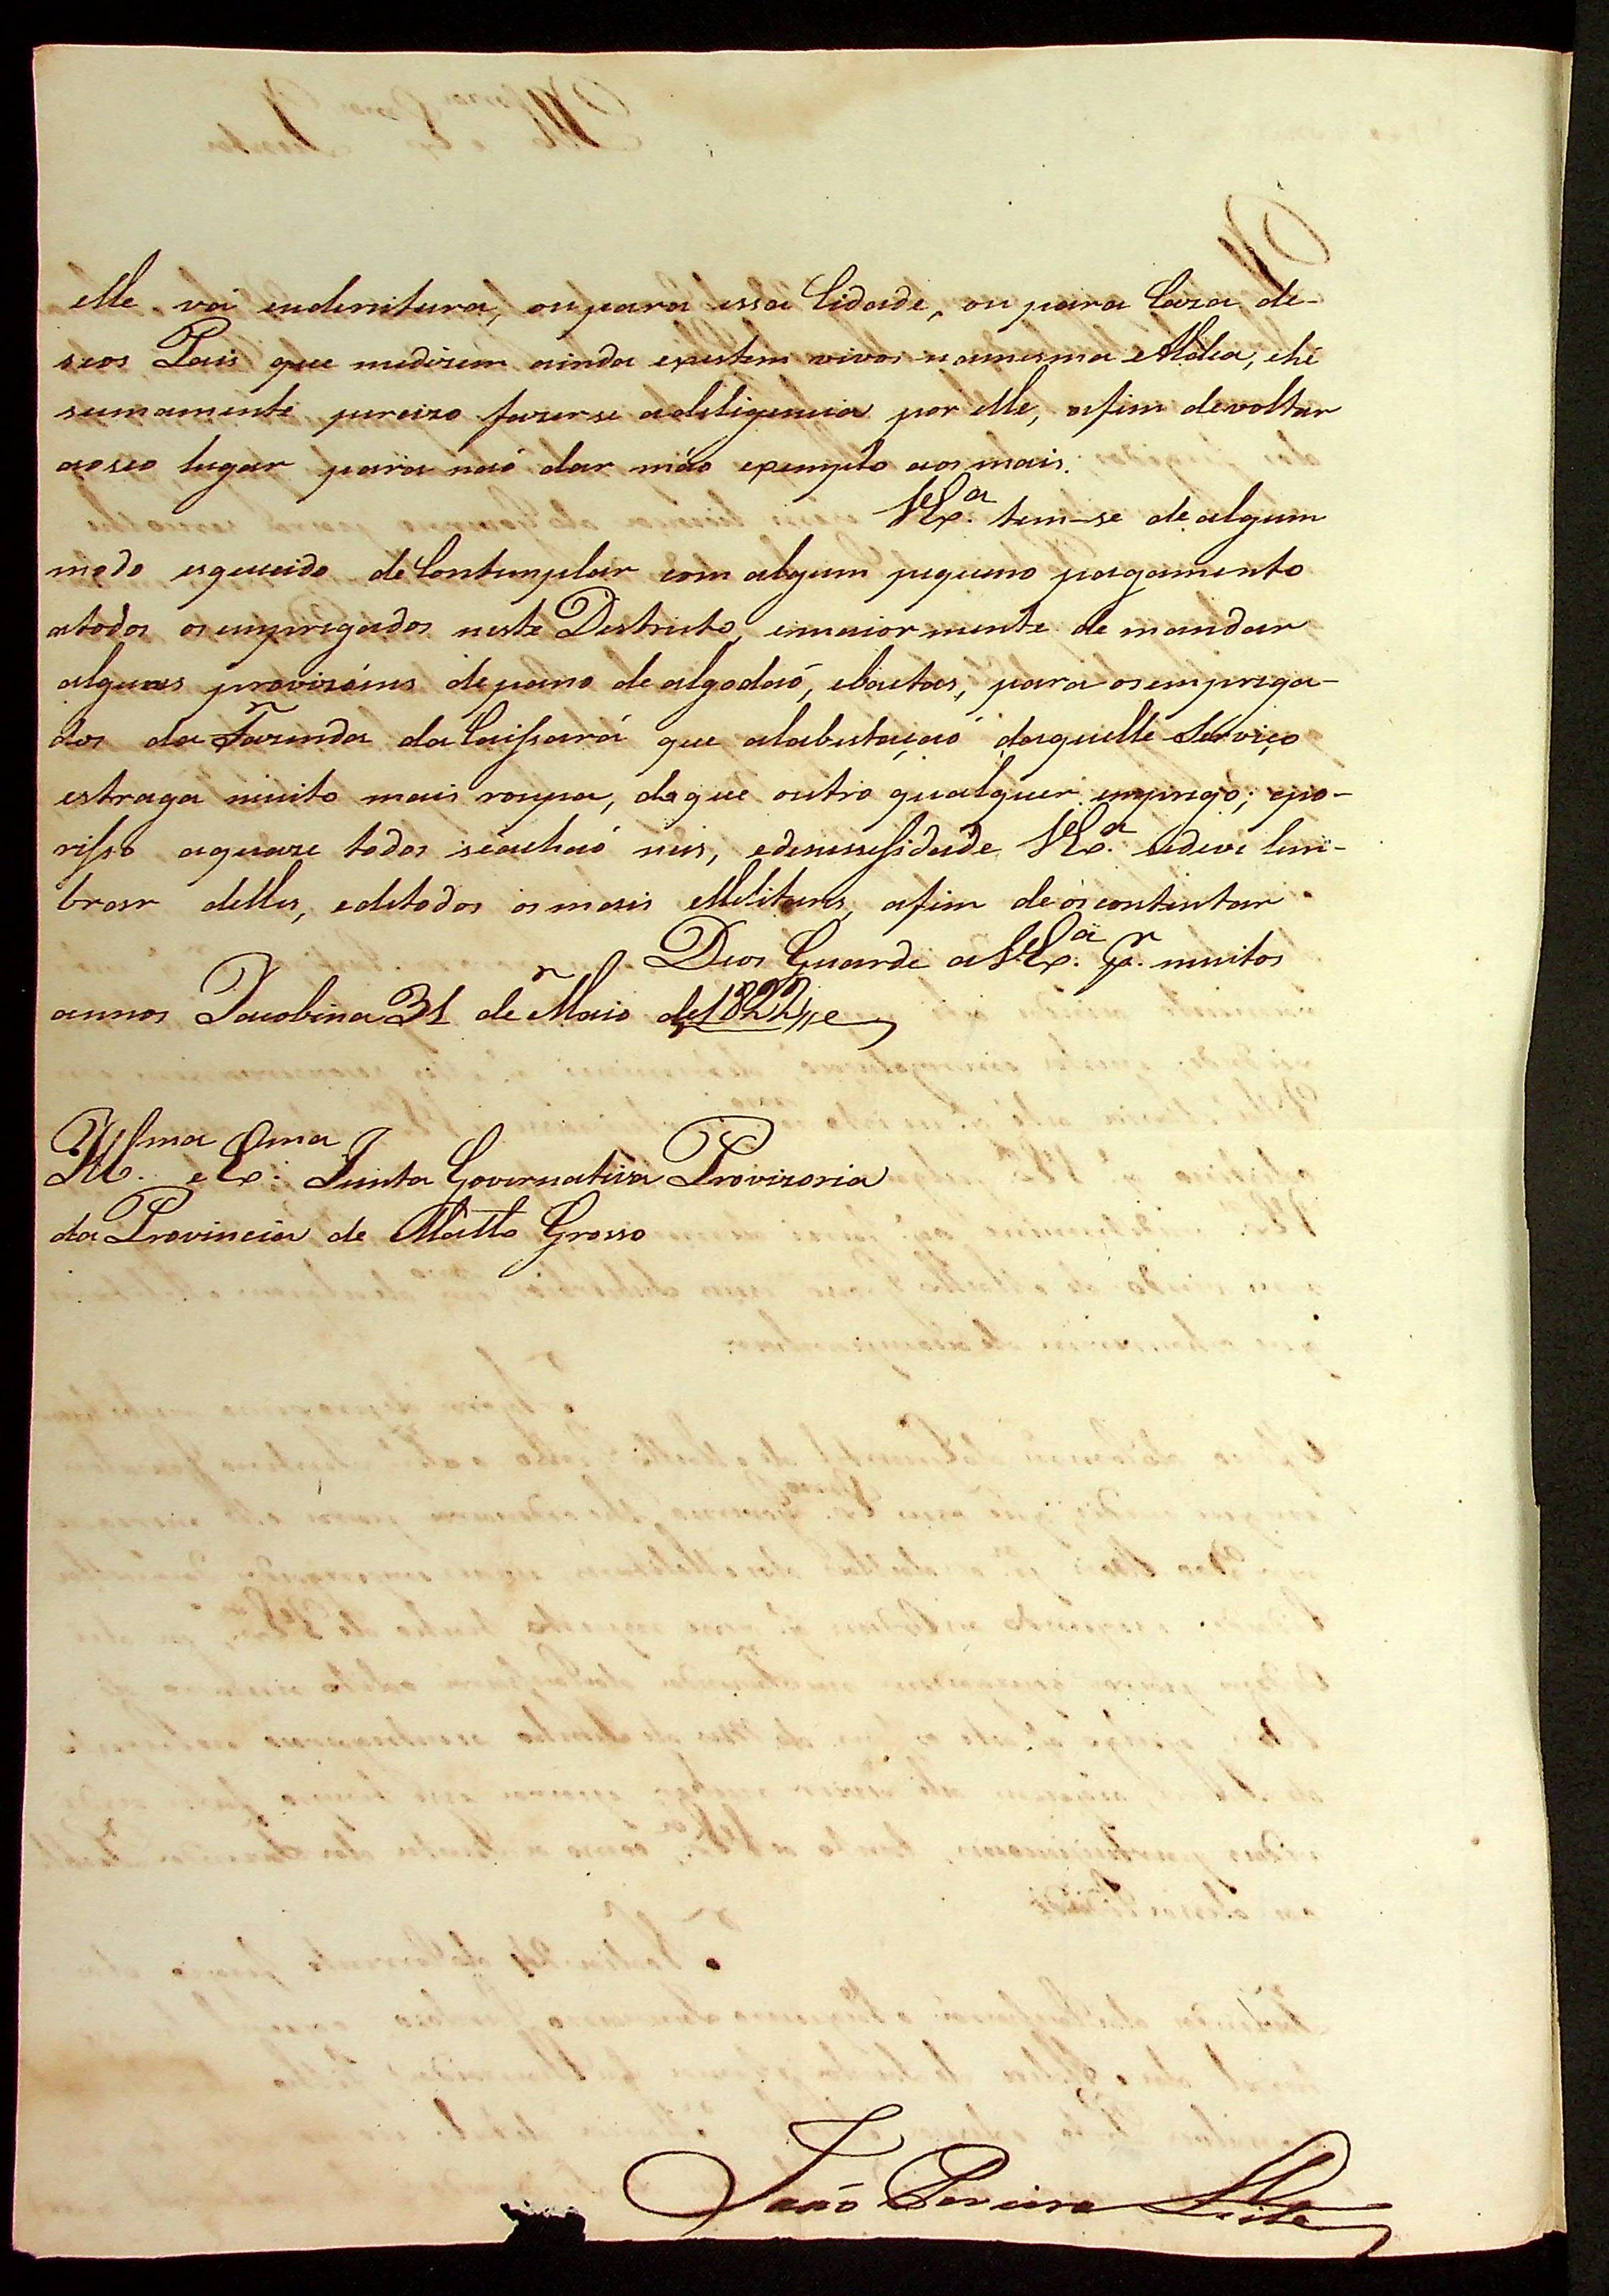 elle vai endenitura, ou para essa Cidade, ou para Caza de-
seos Pais que medizem ainda existem vivos namesma Aldea, ehé
sumamente percizo fazerse adiligencia por elle, afim devoltar
aoseo lugar para naõ dar máo exemplo aos mais.
VEx.ª tem-se de algum
modo esquecido deContemplar com algum pequeno pagamento
atodos osempregados neste Destricto, emaiormente de mandar
algumas provizóins depano de algodaõ, ebaetas, para osemprega-
dos da Fazenda daCaissará que alabutaçaõ daquelle Serviço
estraga muito mais roupa, doque outro qualquer emprego; epo-
risso aquaze todos seachaõ nús, edenessessidade VEx.ª sedeve lem-
brar delles, edetodos osmais Melitares, afim de os contentar
Deos Guarde aVEx.ª p.r muitos
annos Jacobina 31 de Maio de1822
Ill.ma e Ex.ma Junta Governativa Provizoria
da Provincia de Matto Grosso
João Pereira Leite